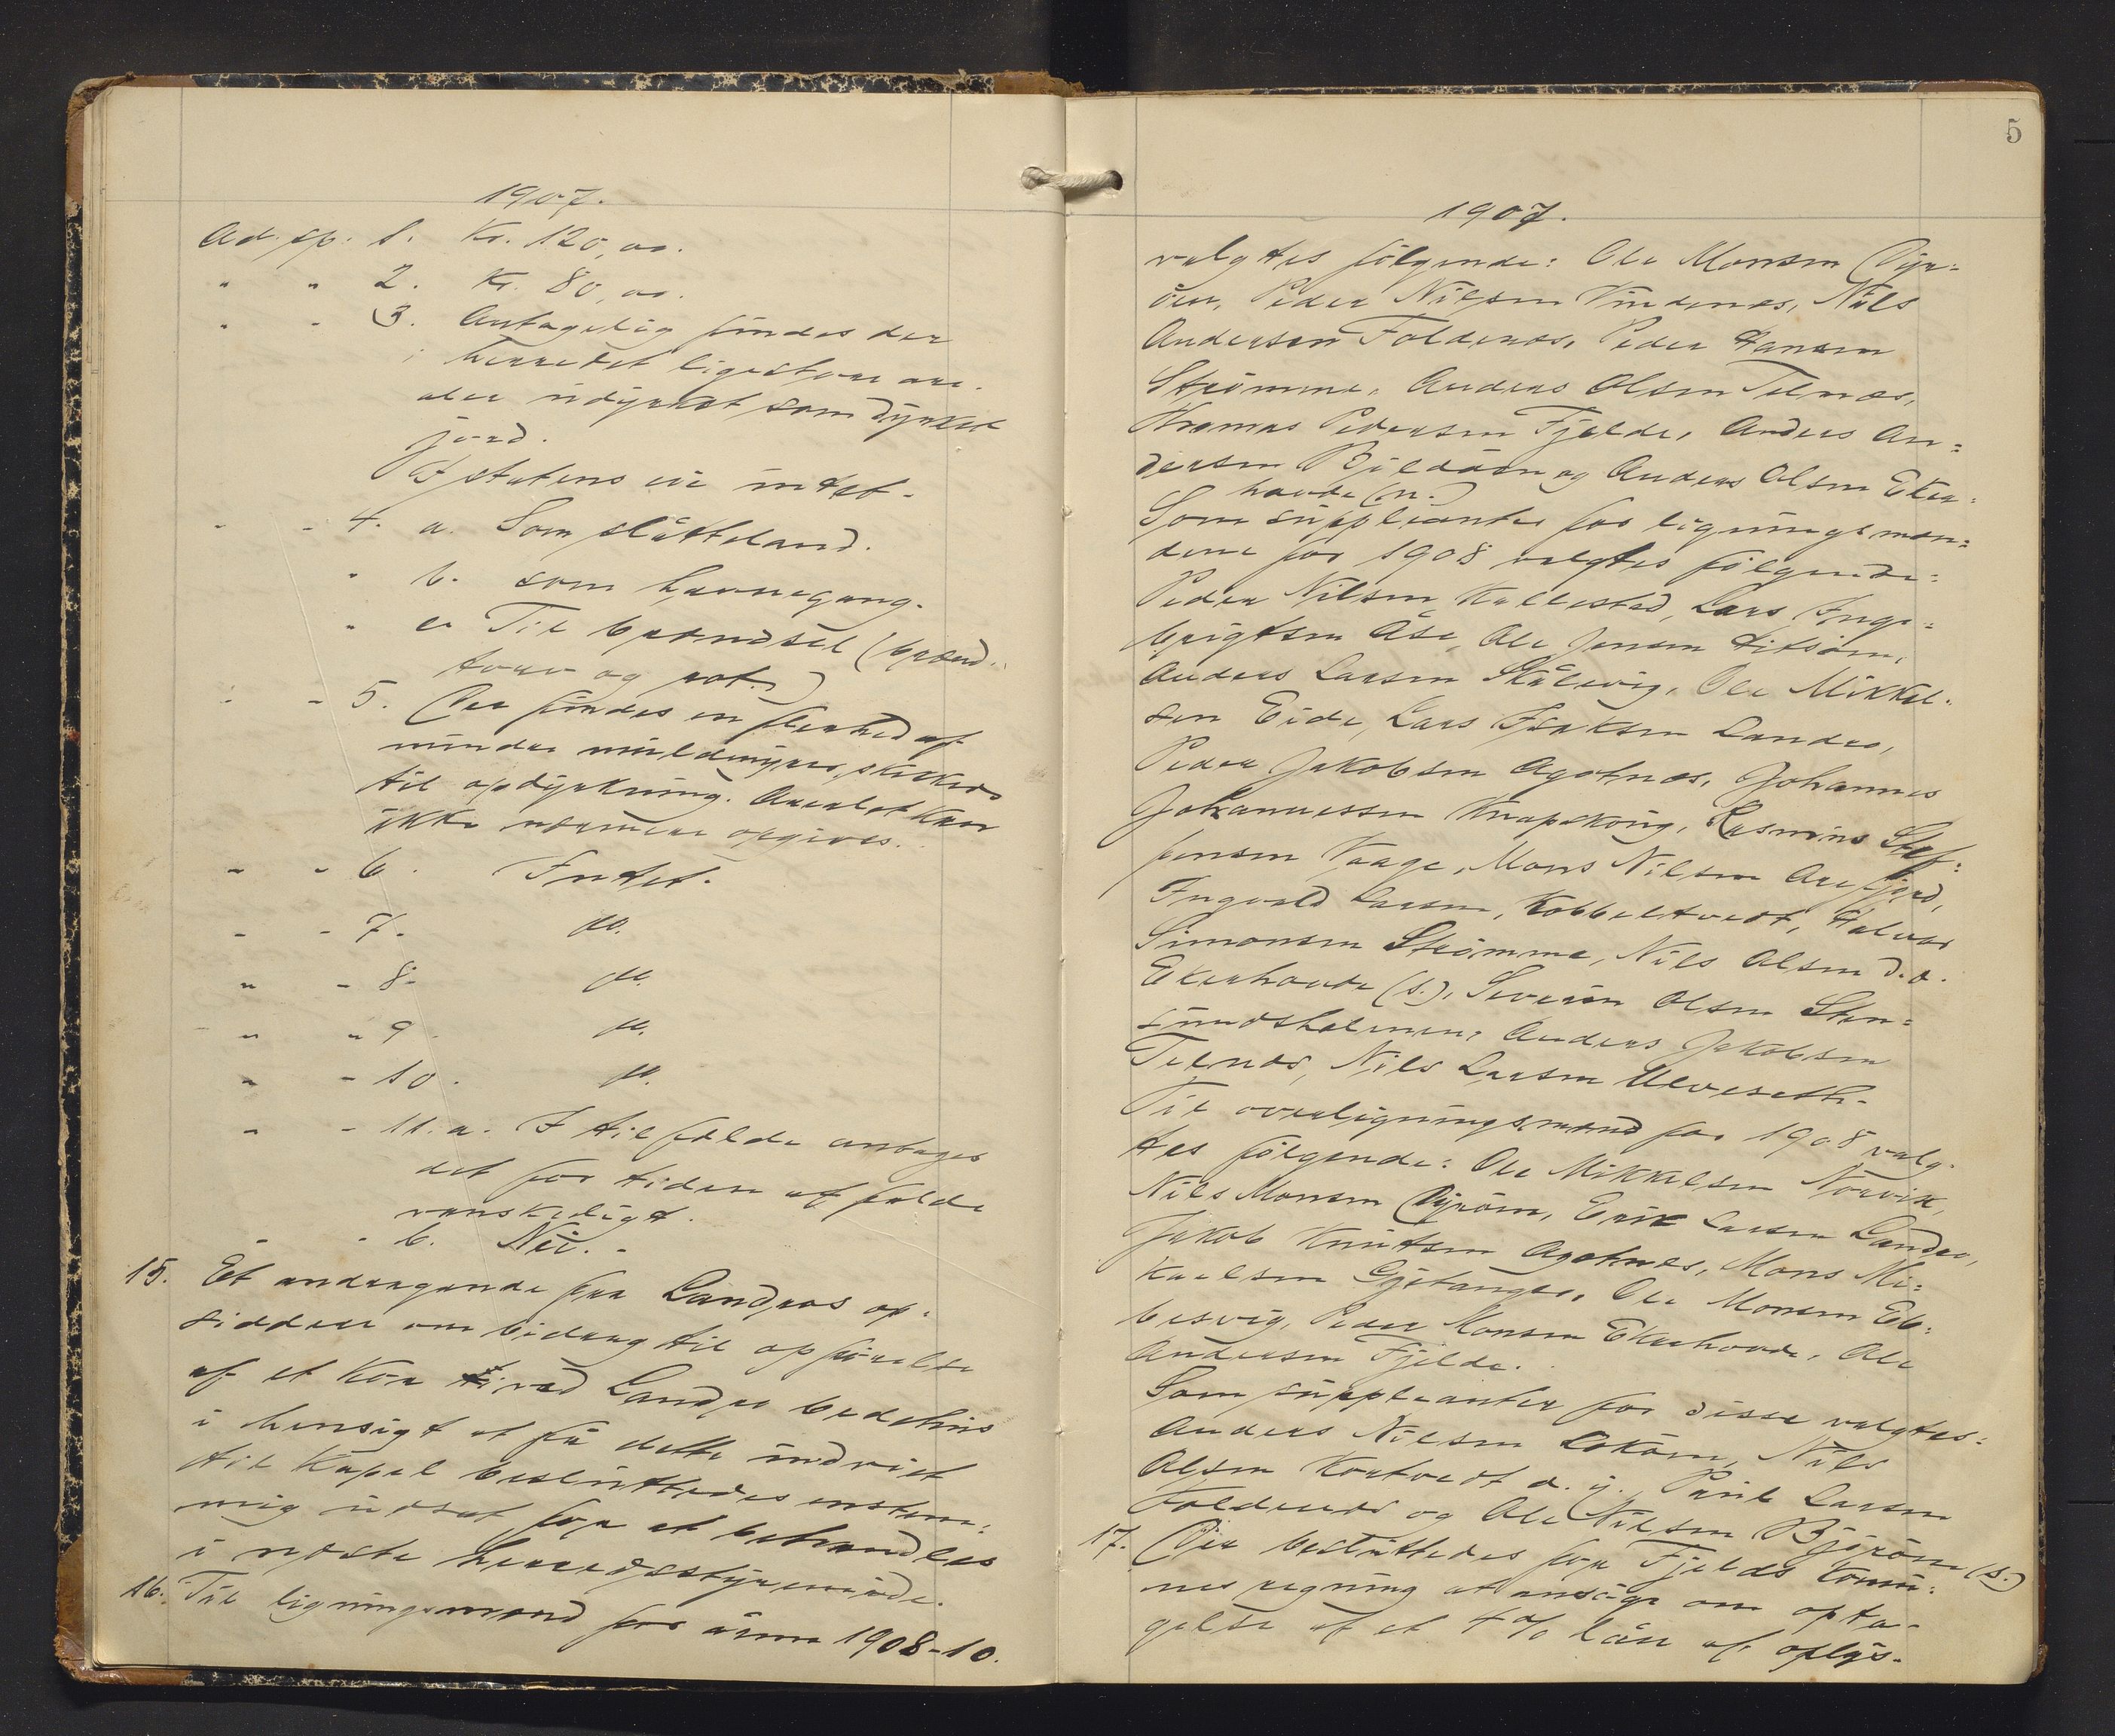 1907.
Ad. sp. 1. Kr. 120,oo.
" " 2. Kr. 80,oo.
" " 3. Antagelig findes der
i herredet ligestore are-
aler udyrket som dyrket
jord.
Af statens eie intet.
" " 4. a. Som slåtteland.
" b. som havnegang.
" c. Til brændsel (brænd-
torv og rot.)
" " 5. Der findes en flerhed af
mindre muldmyrer, skikket
til opdyrkning. Arealet kan
ikke nærmere opgives.
" " 6. Intet.
" " 7. do.
" " 8. do.
" " 9. do.
" " 10. do.
" " 11. a. I tilfælde antages
det for tiden at falde
vanskeligt.
" " b. Nei.
15. Et andragende fra Landros op-
siddere om bidrag til opførelse
af et Kor ved Landro bedehus
i hensigt at få dette indviet
til Kapel besluttedes enstem-
mig udsat for at behandles
i næste herredsstyremöde.
16. Til ligningsmænd for årene 1908-10.
5
1907.
valgtes fölgende: Ole Monsen Dyr-
öen, Peder Nilsen Vindenes, Nils
Andersen Foldenæs, Peder Hansen
Strömme, Anders Olsen Telnæs,
Thomas Pedersen Fjelde, Anders An-
dersen Bildöen og Anders Olsen Eker-
hovde (n.)
Som suppleanter for ligningsmæn-
dene for 1908 valgtes fölgende:
Peder Nilsen Kallestad, Lars Inge-
brigtsen Åse, Ole Jensen Litsöen,
Anders Larsen Skålevig, Ole Mikkel-
sen Eide, Lars Isaksen Landro,
Peder Jakobsen Agotnæs, Johannes
Johannessen Knapskog, Rasmus Stef-
fensen Vaage, Mons Nilsen Arefjord,
Ingvald Larsen, Kobbeltvedt, Halvor
Simonsen Strömme, Nils Olsen d.e.
Ekerhovde (s.), Severin Olsen Sten-
sundsholmen, Anders Jakobsen
Telnæs, Nils Larsen Ulveseth.
Til overligningsmænd for 1908 valg-
tes fölgende: Ole Mikkelsen Norvik,
Nils Monsen Dyröen, Erik Larsen Landro,
Jakob Knutsen Agotnes, Mons Mi-
kaelsen Gjetanger, Ole Monsen Eb-
besvig, Peder Monsen Ekerhovde, Ole
Andersen Fjelde.
Som suppleanter for disse valgtes:
Anders Nilsen Loköen, Nils
Olsen Kortvedt d. y. Paul Larsen
Foldenes og Ole Nilsen Bjoröen (s.)
17. Der besluttedes for Fjelds kommu-
nes regning at ansöge om opta-
gelse af et 4% lån af oplys-